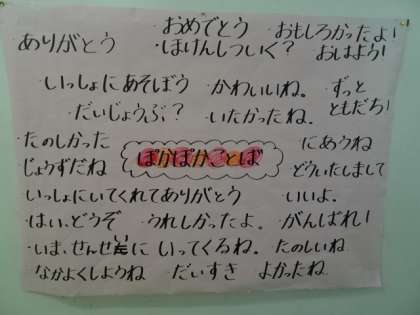 ありがとう
・おめでとう ・おもしろかったよ!
・ほけんしついく? おはよう!
・いっしょにあそぼう ・かわいいね。 ずっと
・だいじょうぶ? ・いたかったね。 ともだち!
・たのしかった
じょうずだね
ぽかぽかことば
にあうね
どういたしまして
いっしょにいてくれてありがとう ・いいよ。
・はい、どうぞ ・うれしかったよ。 ・がんばれ!
・いま、せんせいに いってくるね。 たのしいね
なかよくしようね ・だいすき よかったね